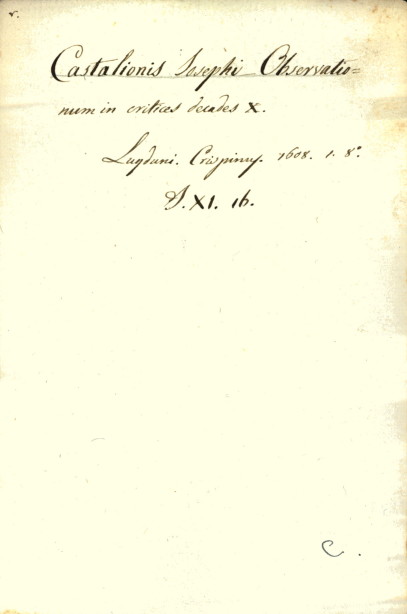 r.
Castalionis Josephi Observatio=
num in critices decades X.
Lugduni. Crispinus. 1608. 1. 8°.
S. XI. 16.
C.